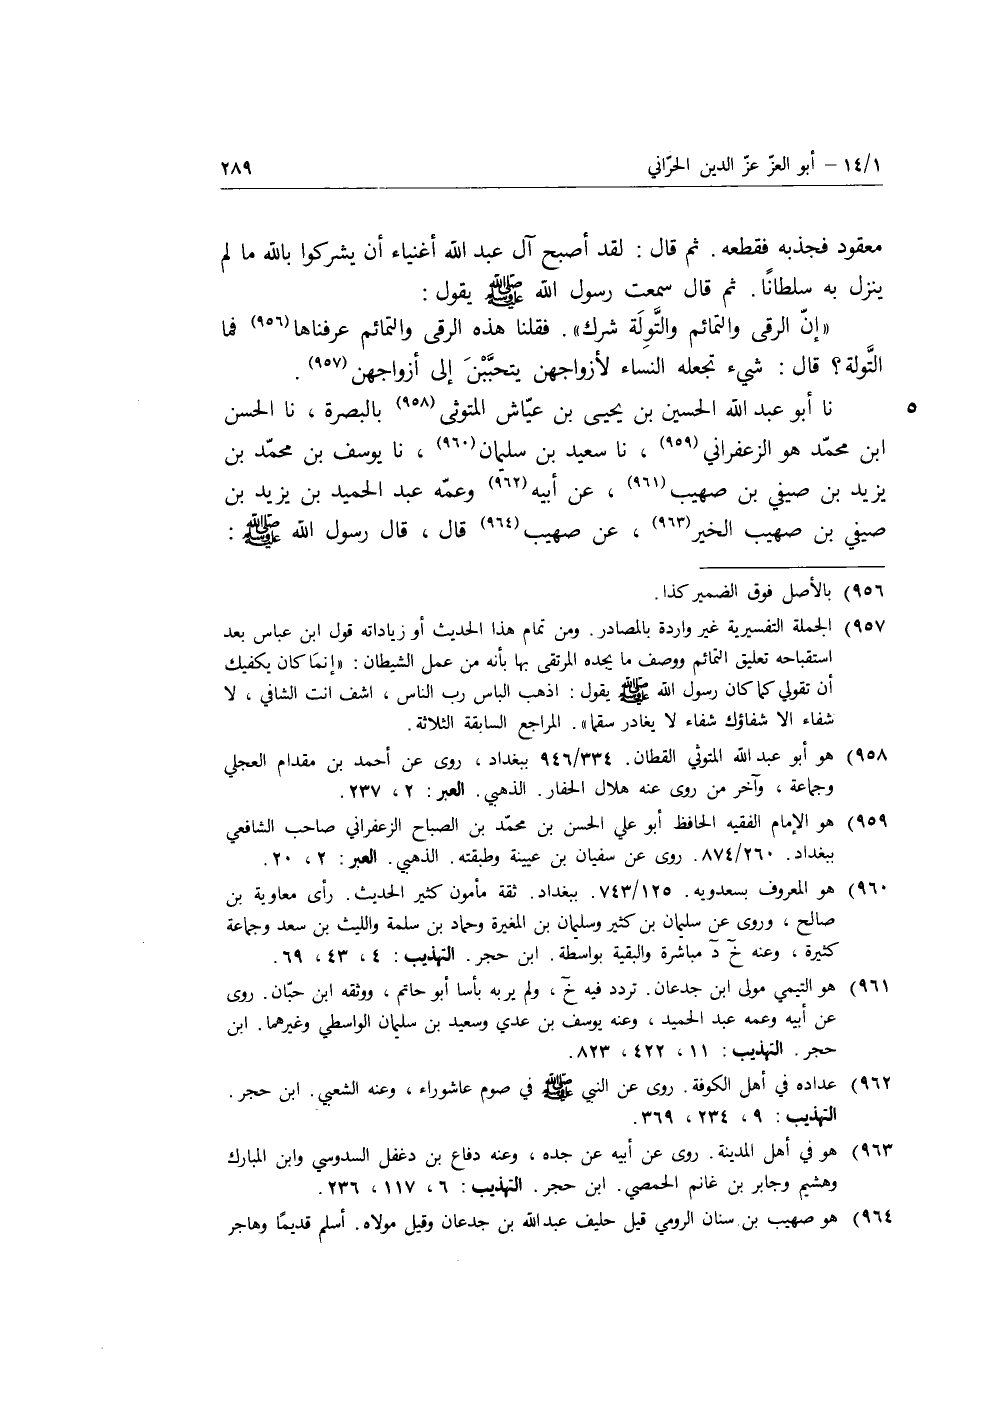 ١٤/١ – أبو العزّ عزّ الدين الحرّاني ٢٨٩
معقود فجذبه فقطعه. ثم قال : لقد أصبح آل عبد الله أغنياء أن يشركوا بالله ما لم
ينزل به سلطانًا. ثم قال سمعت رسول الله ﷺ يقول :
«إنّ الرقى والتمائم والتَّوِلَة شرك». فقلنا هذه الرقى والتمائم عرفناها (٩٥٦) فما
التَّولة؟ قال : شيء تجعله النساء لأزواجهن يتحبَّبْنَ إلى أزواجهن (٩٥٧) .
٥ نا أبو عبد الله الحسين بن يحيى بن عيّاش المتوثى (٩٥٨) بالبصرة ، نا الحسن
ابن محمّد هو الزعفراني (٩٥٩) ، نا سعيد بن سليمان (٩٦٠) ، نا يوسف بن محمّد بن
يزيد بن صيفي بن صهيب (٩٦١) ، عن أبيه (٩٦٢) وعمّه عبد الحميد بن يزيد بن
صيفي بن صهيب الخير (٩٦٣) ، عن صهيب (٩٦٤) قال ، قال رسول الله ﷺ :
٩٥٦) بالأصل فوق الضمير كذا.
٩٥٧) الجملة التفسيرية غير واردة بالمصادر. ومن تمام هذا الحديث أو زياداته قول ابن عباس بعد
استقباحه تعليق التمائم ووصف ما يجده المرتقى بها بأنه من عمل الشيطان : «إنمَا كان يكفيك
أن تقولي كما كان رسول الله ﷺ يقول : اذهب الباس رب الناس ، اشف انت الشافي ، لا
شفاء الا شفاؤك شفاء لا يغادر سقما». المراجع السابقة الثلاثة.
٩٥٨) هو أبو عبد الله المتوثي القطان. ٩٤٦/٣٣٤ ببغداد ، روى عن أحمد بن مقدام العجلي
وجماعة ، وآخر من روى عنه هلال الحفار. الذهبي. العبر : ٢ ، ٢٣٧.
٩٥٩) هو الإمام الفقيه الحافظ أبو علي الحسن بن محمّد بن الصباح الزعفراني صاحب الشافعي
ببغداد. ٨٧٤/٢٦٠. روى عن سفيان بن عيينة وطبقته. الذهبي. العبر : ٢ ، ٢٠.
٩٦٠) هو المعروف بسعدويه. ٧٤٣/١٢٥. ببغداد. ثقة مأمون كثير الحديث. رأى معاوية بن
صالح ، وروى عن سليمان بن كثير وسليمان بن المغيرة وحماد بن سلمة والليث بن سعد وجماعة
كثيرة ، وعنه خَ دَ مباشرة والبقية بواسطة. ابن حجر. التهذيب : ٤ ، ٤٣ ، ٦٩.
٩٦١) هو التيمي مولى ابن جدعان. تردد فيه خَ ، ولم يربه بأسا أبو حاتم ، ووثقه ابن حبّان. روى
عن أبيه وعمه عبد الحميد ، وعنه يوسف بن عدي وسعيد بن سليمان الواسطي وغيرهما. ابن
حجر. التهذيب : ١١ ، ٤٢٢ ، ٨٢٣.
٩٦٢) عداده في أهل الكوفة. روى عن النبي ﷺ في صوم عاشوراء ، وعنه الشعبي. ابن حجر.
التهذيب : ٩ ، ٢٣٤ ، ٣٦٩.
٩٦٣) هو في أهل المدينة. روى عن أبيه عن جده ، وعنه دفاع بن دغفل السدوسي وابن المبارك
وهشيم وجابر بن غانم الحمصي. ابن حجر. التهذيب : ٦ ، ١١٧ ، ٢٣٦.
٩٦٤) هو صهيب بن سنان الرومي قيل حليف عبد الله بن جدعان وقيل مولاه. أسلم قديمًا وهاجر